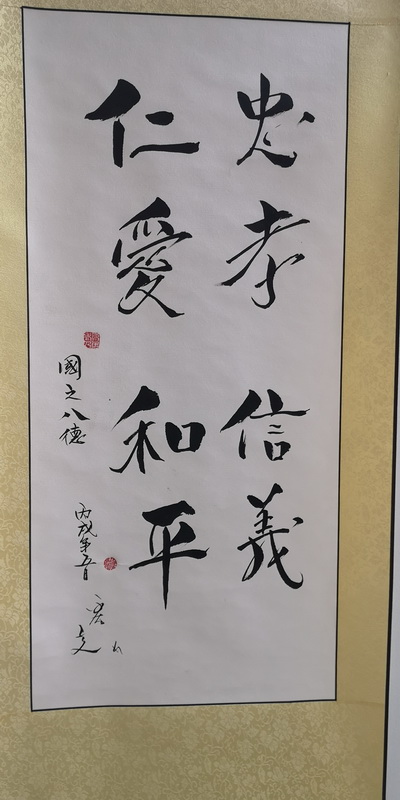 忠孝信義
仁愛和平
國之八德
丙戌年五月